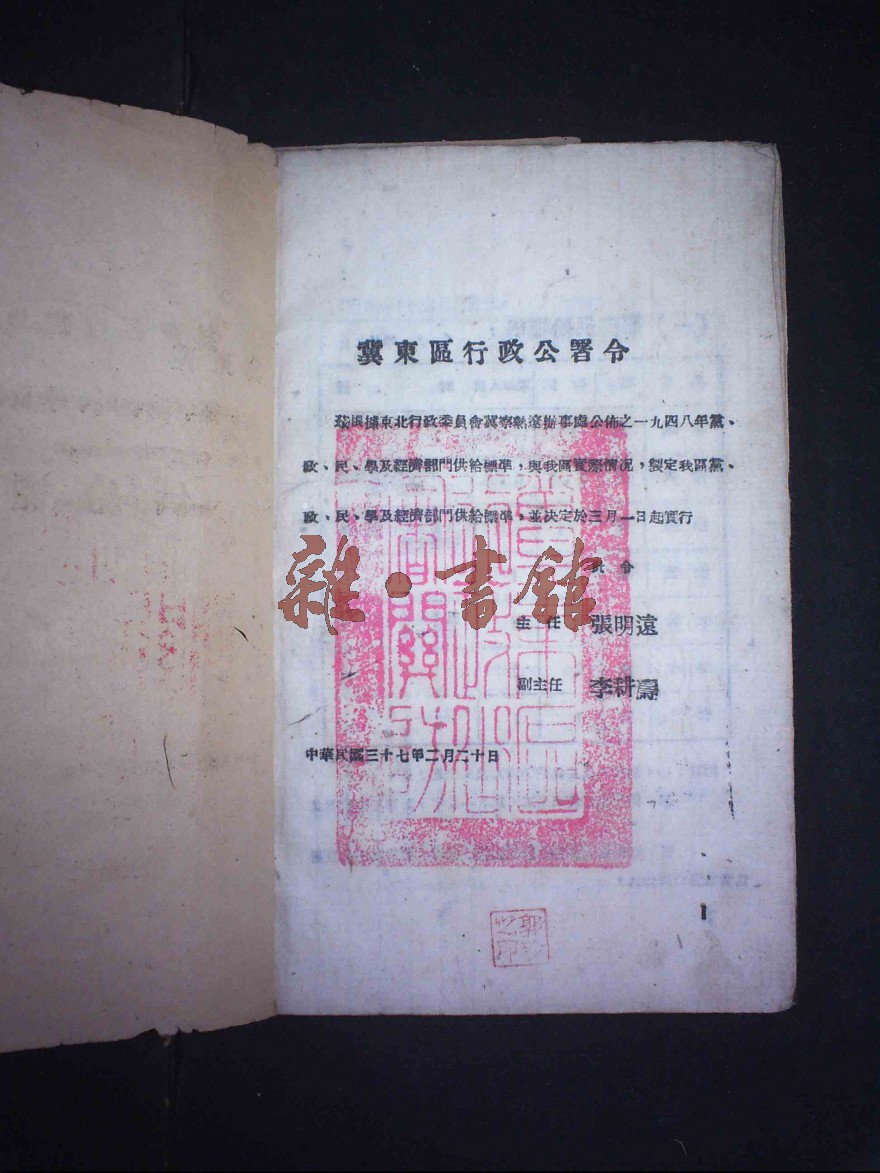 冀東區行政公署令
茲根據東北行政委員會冀察熱遼辦事處公佈之一九四八年黨、
政、民、學及經濟部門供給標準，與我區實際情况，製定我區黨、
政、民、學及經濟部門供給標準，並決定於三月一日起實行
此令
雜·書館
主任 張明遠
副主任 李耕濤
中華民國三十七年二月二十日
1